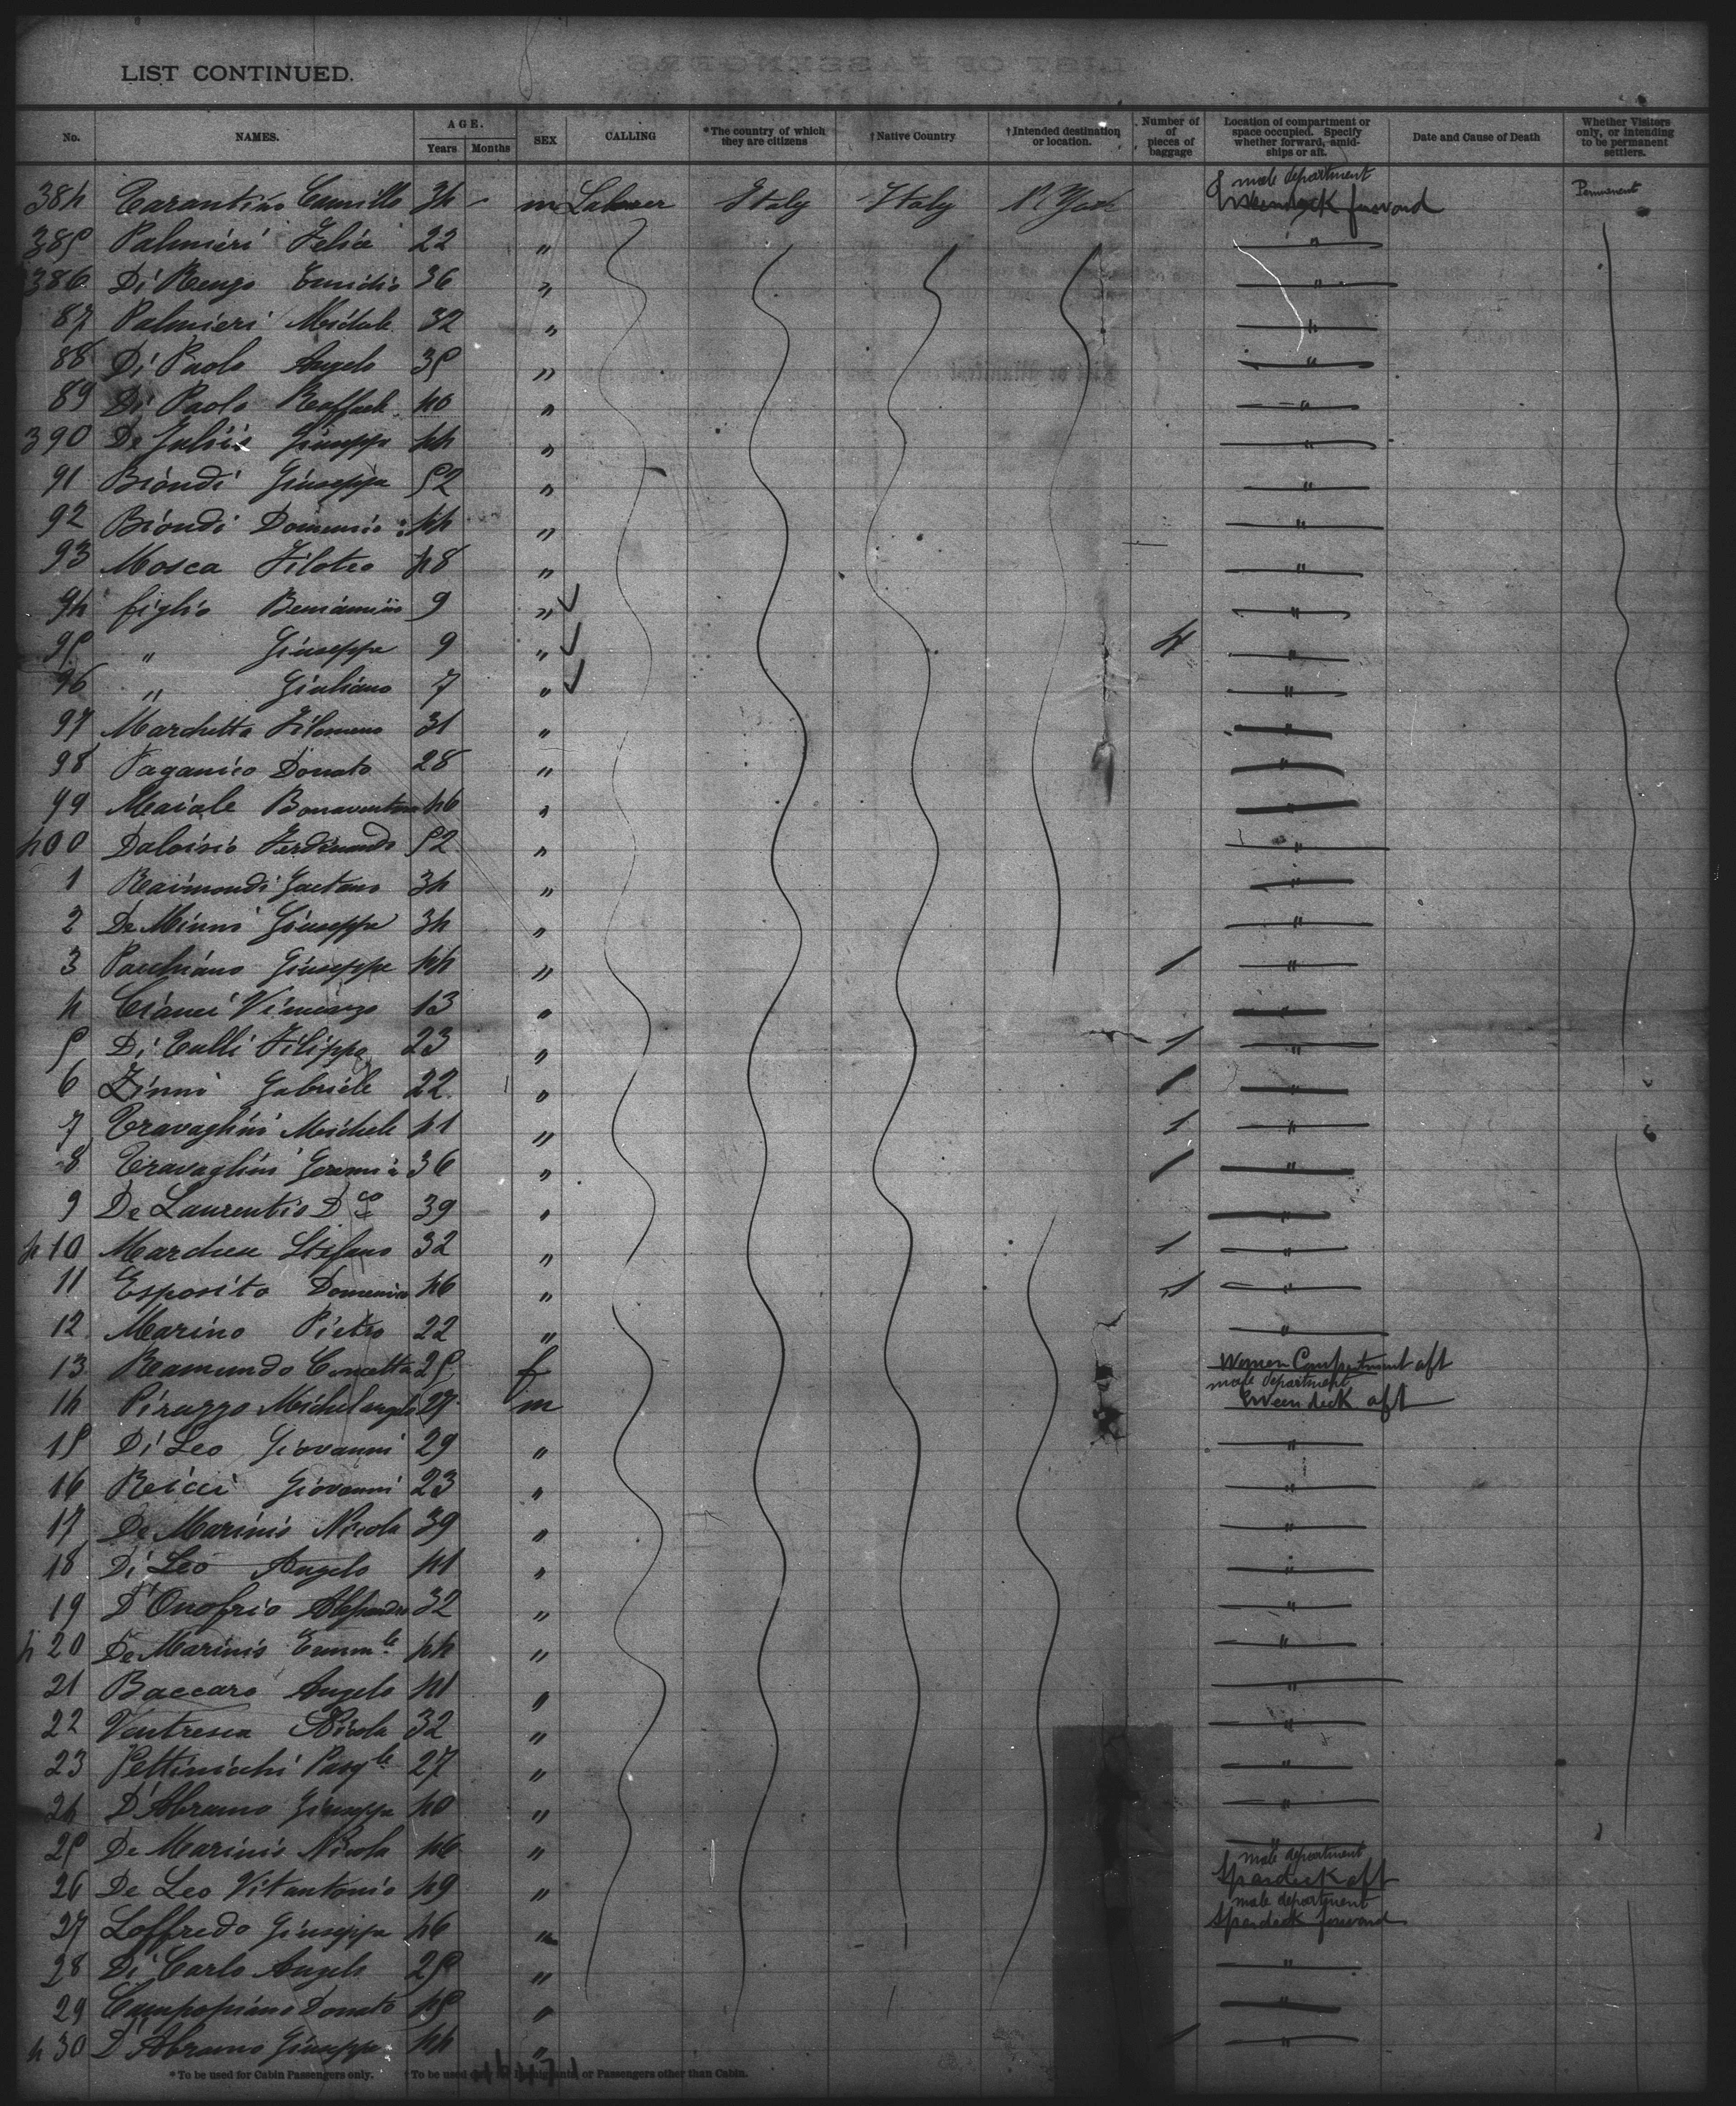 LIST CONTINUED.
No. NAMES. AGE. Years Months SEX CALLING *The country of which they are citizens †Native Country †Intended destination or location. Number of pieces of baggage Location of compartment or space occupied. Specify whether forward, amidships or aft. Date and Cause of Death Whether Visitors only, or intending to be permanent settlers.
384 Tarantino Camillo 34 m Laborer Italy Italy N. York male department forward Permanent
385 Palmieri Felice 22 "  "
386 Di Renzo Emidio 36 " "
87 Palmieri Michele 32 " "
88 Di Paolo Angelo 35 " "
89 Di Paolo Raffaele 40 " "
390 De Juliis Giuseppe 44 " "
91 Biondi Giuseppe 52 " "
92 Biondi Domenico 44 " "
93 Mosca Filoteo 48 " "
94 figlio Beniamino 9 " "
95 " Giuseppe 9 " 4 "
96 " Giuliano 7 " "
97 Marchetta Filomeno 31 " "
98 Paganico Donato 28 " "
99 Maiale Bonaventura 46 " "
400 Daloisio Ferdinando 52 " "
1 Raimondi Gaetano 34 " "
2 De Minni Giuseppe 34 " "
3 Pacchiano Giuseppe 44 " 1 "
4 Cianci Vincenzo 13 " "
5 Di Tulli Filippo 23 " 1 "
6 Zinni Gabriele 22 " 1 "
7 Travaglini Michele 41 " 1 "
8 Travaglini Geremia 36 " 1 "
9 De Laurentis Dco 39 " "
410 Stefano 32 " 1 "
11 Esposito Domenico 46 " 1 "
12 Marino Pietro 22 " "
13 Ramundo Concetta 25 f Women Compartment aft
14 Pirazzo Michelangelo 27 m male department tween deck aft
15 Di Leo Giovanni 29 " "
16 Ricci Giovanni 23 " "
17 De Marinis Nicola 39 " "
18 Di Leo Angelo 41 " "
19 D'Onofrio Alessandro 32 " "
420 De Marinis Emmle 44 " "
21 Baccaro Angelo 41 " "
22 Ventresca Nicola 32 " "
23 Pettinicchi Pasqle 27 " "
24 D'Abramo Giuseppe 40 " "
25 De Marinis Nicola 46 " "
26 De Leo Vitantonio 49 " male department Spardeck aft
27 Loffredo Giuseppe 46 " male department Spardeck forward
28 Di Carlo Angelo 25 " "
29 Campopiano Donato 45 " "
430 D'Abramo Giuseppe 44 " 1 "
*To be used for Cabin Passengers only. †To be used only for Immigrants or Passengers other than Cabin.